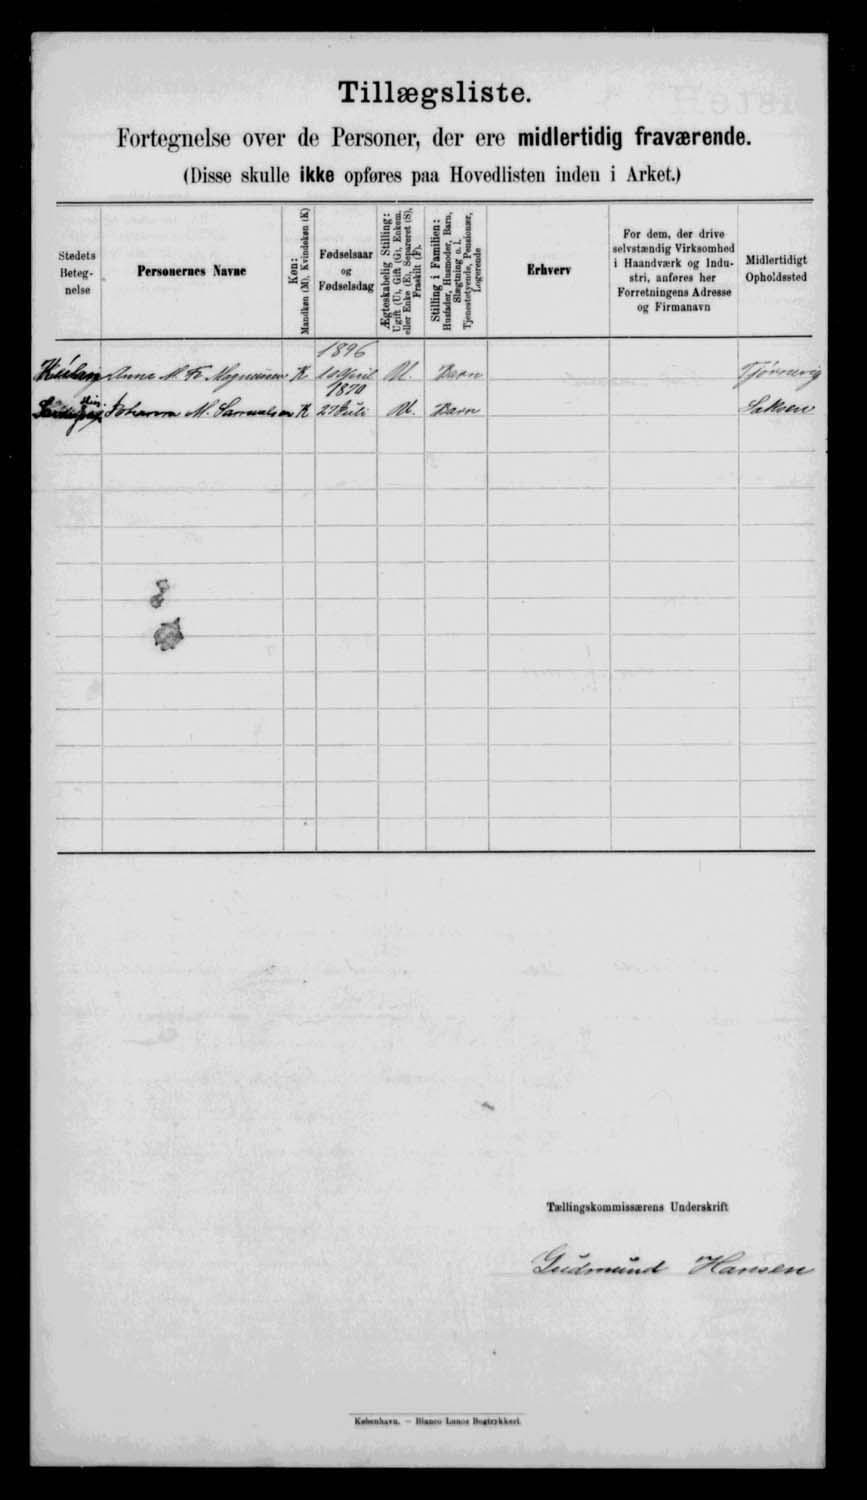 Tillægsliste.
Fortegnelse over de Personer, der ere midlertidig fraværende.
(Disse skulle ikke opføres paa Hovedlisten inden i Arket.)
Stedets Beteg-nelse
Personernes Navne
Køn:
Mandkøn (M), Kvindekøn (K)
Fødselsaar
og
Fødselsdag
Ægteskabelig Stilling:
Ugift (U), Gift (G), Enkem.
eller Enke (E), Separeret (S),
Fraskilt (F).
Stilling i Familien:
Husfader, Husmoder, Barn,
Slægtning o. l.
Tjenestetyende, Pensionær,
Logerende
Erhverv
For dem, der drive
selvstændig Virksomhed
i Haandværk og Indu-
stri, anføres her
Forretningens Adresse
og Firmanavn
Midlertidigt
Opholdssted
1896
Anna M. Fr. Magnussen K April U. Barn Tjørnevig
Johanna M. Samuelsen K 27 Juli U. Barn Saksen
Tællingskommissærens Underskrift
Gudmund Hansen
København. — Bianco Lunos Bogtrykkeri.